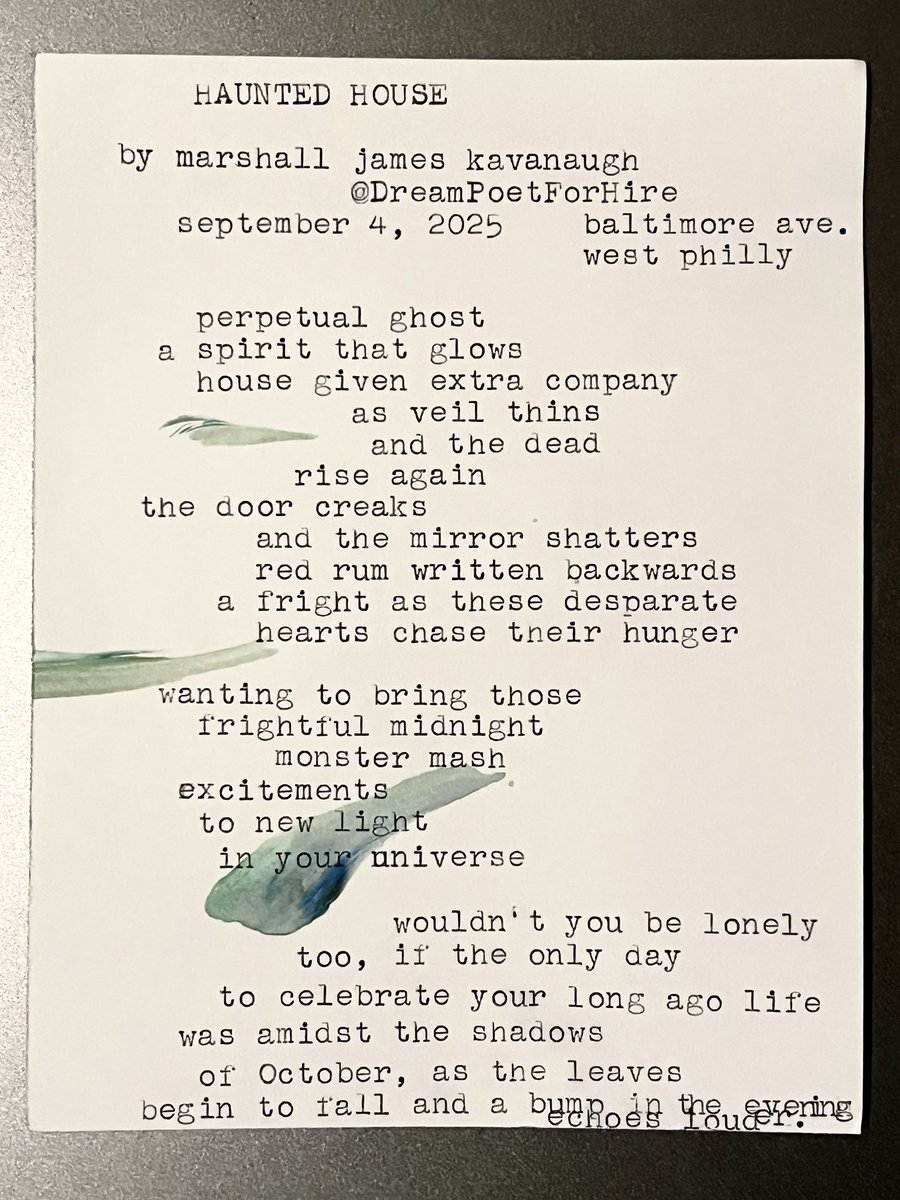 HAUNTED HOUSE
by marshall james kavanaugh
@DreamPoetForHire
september 4, 2025 baltimore ave.
west philly
perpetual ghost
a spirit that glows
house given extra company
as veil thins
and the dead
rise again
the door creaks
and the mirror shatters
red rum written backwards
a fright as these desparate
hearts chase their hunger
wanting to bring those
frightful midnight
monster mash
excitements
to new light
in your universe
wouldn't you be lonely
too, if the only day
to celebrate your long ago life
was amidst the shadows
of October, as the leaves
begin to fall and a bump in the evening
echoes louder.